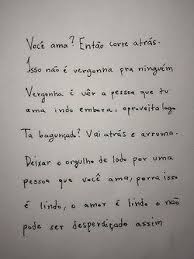 Você ama? Então corre atrás.
Isso não é vergonha pra ninguém
Vergonha é vêr a pessoa que tu
ama indo embora, aproveita logo
Ta bagunçado? Vai atrás e arruma.
Deixar o orgulho de lado por uma
pessoa que você ama, porra isso
é lindo, o amor é lindo e não
pode ser desperdiçado assim